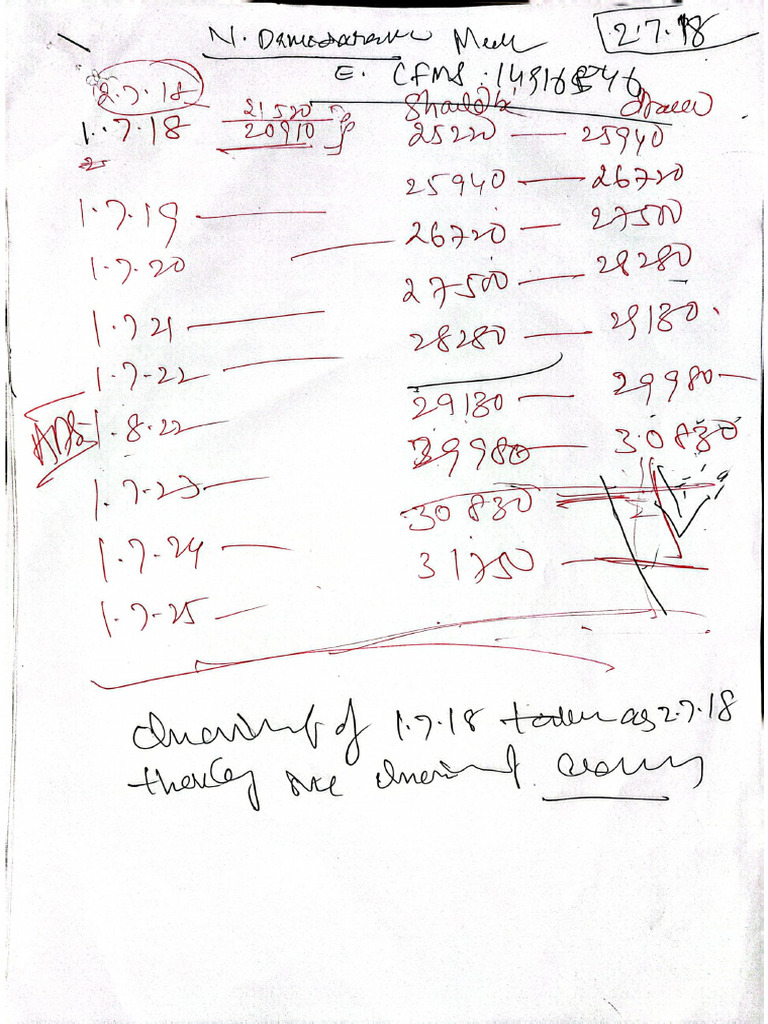 2.7.18
N. Damodaram Mech
E. CFMS : 14916846
2.7.18
should be drawn
1.7.18 21520 25220 — 25940
20910
25940 — 26720
1.7.19 —
26720 — 27500
1.7.20
27500 — 28280
1.7.21 —
28280 — 29180.
1.7.22
29180 — 29980 —
1.8.22
39980 — 30830
1.7.23 —
30830
1.7.24 —
31750 —
1.7.25 —
of 1.7.18 taken as 2.7.18